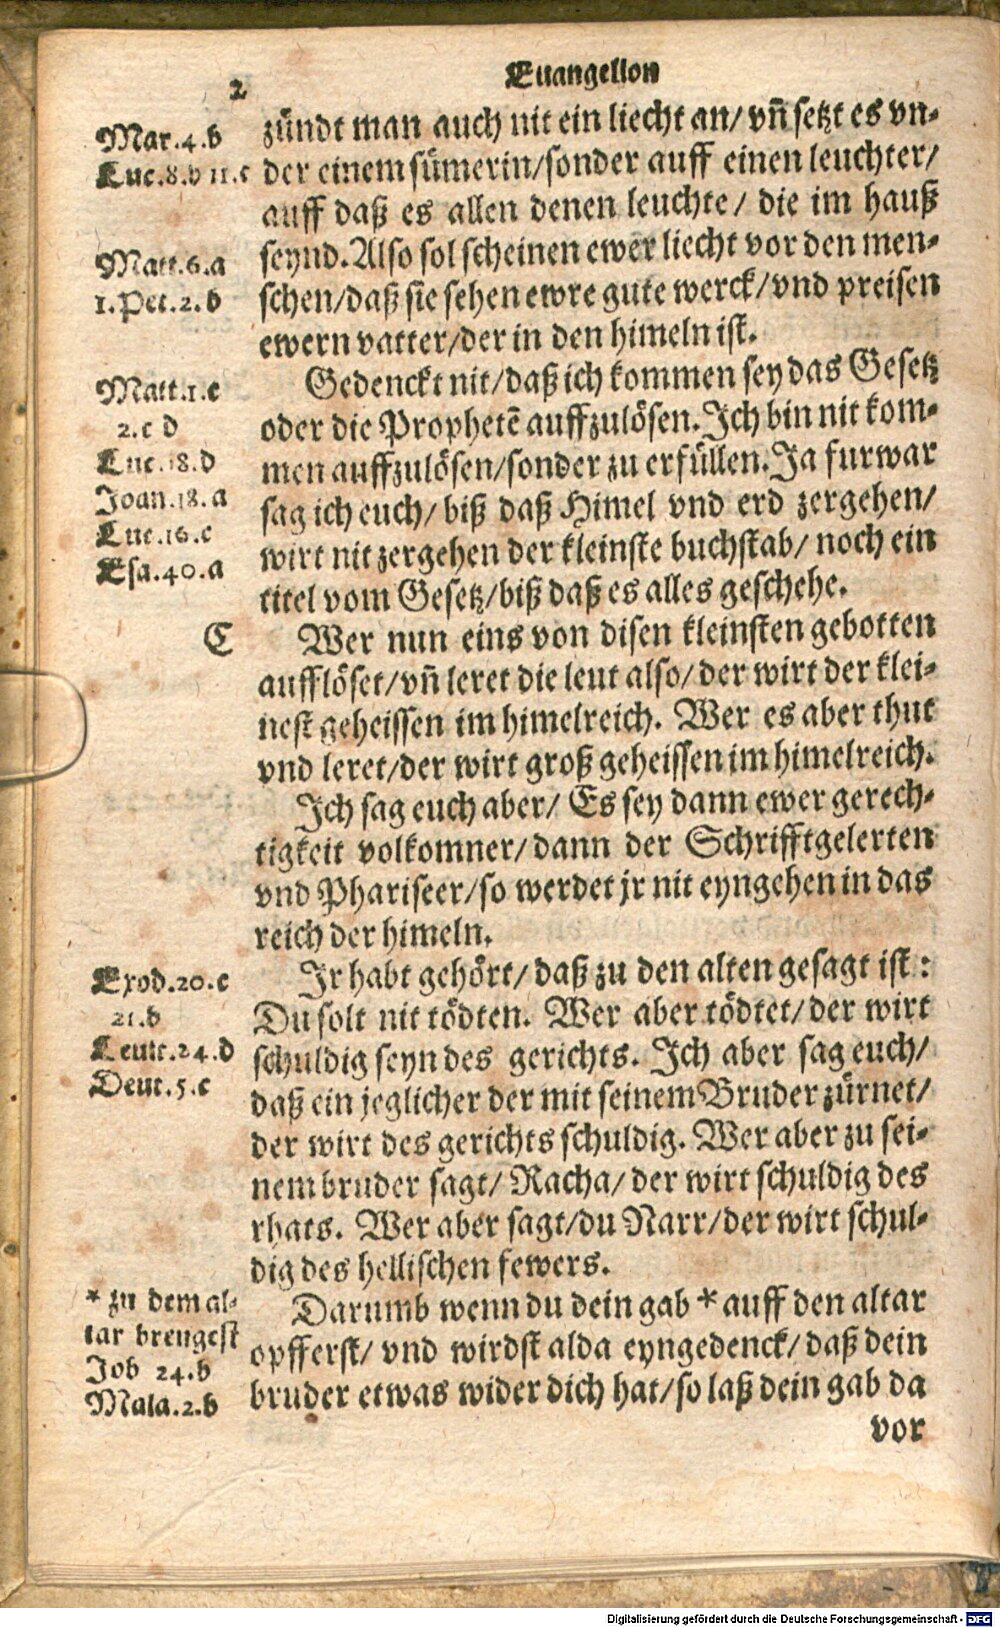 2
Euangelion
Mar.4.b
Luc.8.b 11.c
Matt.6.a
1.Pet.2.b
Matt.1.c
2.c d
Luc.18.d
Joan.18.a
Luc.16.c
Esa.40.a
C
Exod.20.c
21.b
Leuit.24.d
Deut.5.c
* zu dem al-
tar brengest
Job 24.b
Mala.2.b
zündt man auch nit ein liecht an/ vñ setzt es vn-
der einem sümerin/sonder auff einen leuchter/
auff daß es allen denen leuchte/ die im hauß
seynd. Also sol scheinen ewer liecht vor den men-
schen/daß sie sehen ewre gute werck/vnd preisen
ewern vatter/der in den himeln ist.
Gedenckt nit/daß ich kommen sey das Gesetz
oder die Prophetẽ auffzulösen. Ich bin nit kom-
men auffzulösen/sonder zu erfüllen. Ja furwar
sag ich euch/ biß daß Himel vnd erd zergehen/
wirt nit zergehen der kleinste buchstab/ noch ein
titel vom Gesetz/biß daß es alles geschehe.
Wer nun eins von disen kleinsten gebotten
aufflöset/vñ leret die leut also/ der wirt der klei-
nest geheissen im himelreich. Wer es aber thut
vnd leret/der wirt groß geheissen im himelreich.
Ich sag euch aber/ Es sey dann ewer gerech-
tigkeit volkomner/dann der Schrifftgelerten
vnd Phariseer/so werdet jr nit eyngehen in das
reich der himeln.
Ir habt gehört/daß zu den alten gesagt ist:
Du solt nit tödten. Wer aber tödtet/der wirt
schuldig seyn des gerichts. Ich aber sag euch/
daß ein jeglicher der mit seinem Bruder zürnet/
der wirt des gerichts schuldig. Wer aber zu sei-
nem bruder sagt/ Racha/ der wirt schuldig des
rhats. Wer aber sagt/du Narr/der wirt schul-
dig des hellischen fewers.
Darumb wenn du dein gab * auff den altar
opfferst/ vnd wirdst alda eyngedenck/daß dein
bruder etwas wider dich hat/so laß dein gab da
vor
Digitalisierung gefördert durch die Deutsche Forschungsgemeinschaft - DFG